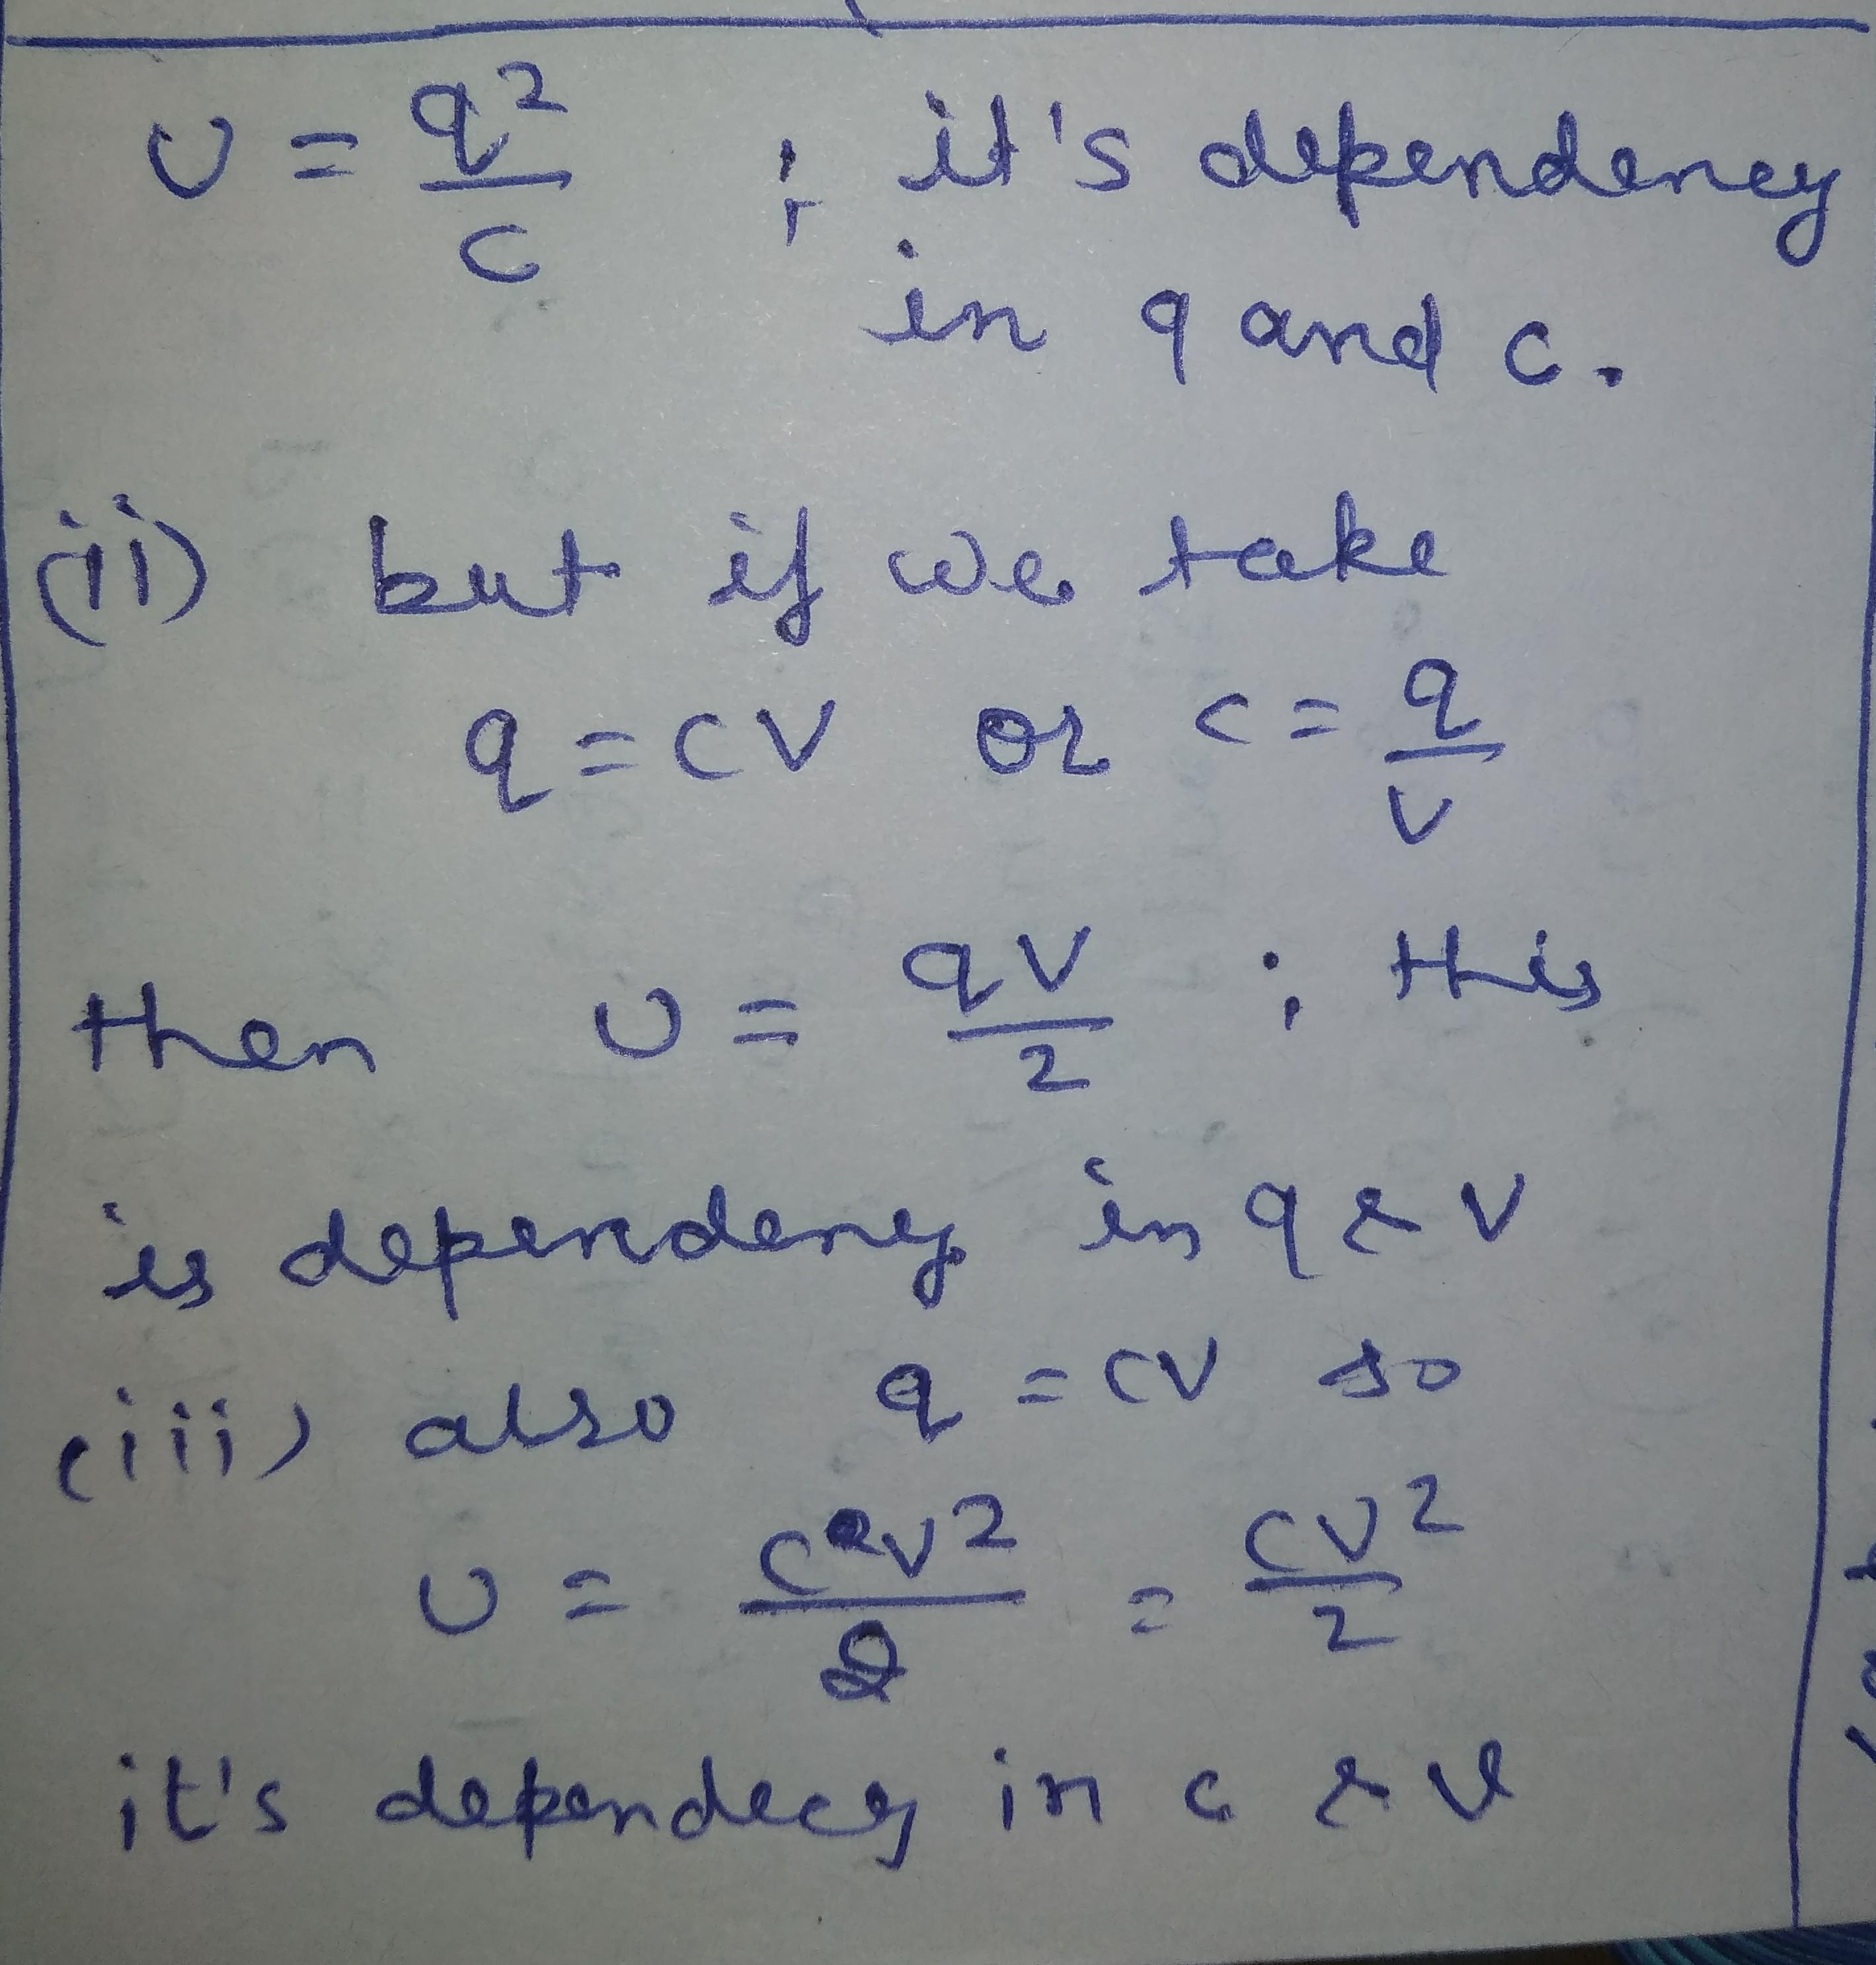 U = q²/C ; it's dependency
in q and c.
(ii) but if we take
q = CV or C = q/V
then U = qV/2 ; this
is dependency in q & V
(iii) also q = CV so
U = C²V²/2 = CV²/2
it's dependecy in c & v